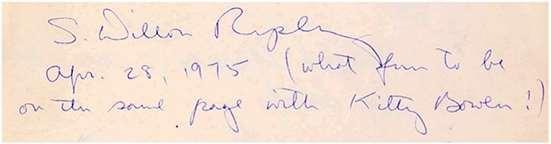 S. Dillon Ripley
Apr. 28, 1975 (what fun to be
on the same page with Kitty Bowen!)